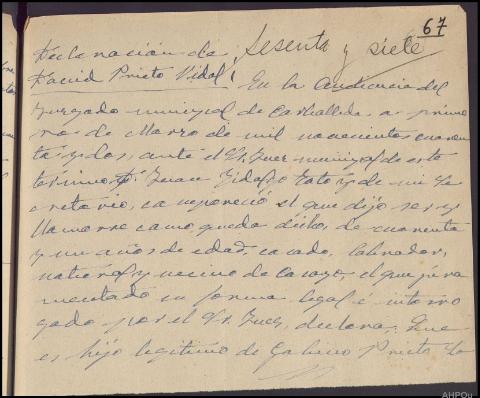 67
Declaración de Sesenta y siete
David Prieto Vidal, En la Audiencia del
Juzgado municipal de Carballeda, a primero
de Marzo de mil novecientos cuaren
ta y dos, ante el Sr. Juez municipal de este
término D. Juan y de mi Se
cretario, compareció el que dijo ser y
llamarse como queda dicho, de cuarenta
y un años de edad, casado, labrador,
natural y vecino de Casayo, el que jura
mentado en forma legal é interro
gado por el Sr. Juez, declara: Que
es hijo legítimo de Prieto
AHPOu